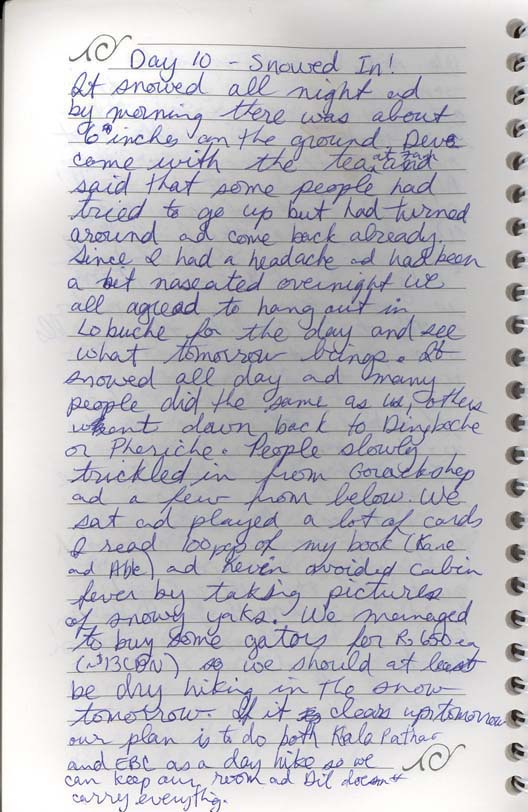 Day 10 - Snowed In!
It snowed all night ad
by morning there was about
6" inches on the ground. Deve
come with the tea at and
said that some people had
tried to go up but had turned
around ad come back already.
Since I had a headache ad had been
a bit naseated overnight we
all agread to hang out in
Lobuche for the day and see
what tomorrow brings. It
snowed all day ad many
people did the same as us, others
went down back to Dingboche
or Pheriche. People slowly
trickled in from Gorackshep
ad a few from below. We
sat ad played a lot of cards
I read 100pgs of my book (Kane
and Able) ad Kevin avoided cabin
fever by taking pictures
of snowy yaks. We managed
to buy some gators for Rs 600 ea
(~13CDN) so we should at least
be dry hiking in the snow
tomorrow. If it clears up tomorrow
our plan is to do both Kala Pathar
and EBC as a day hike so we
can keep our room ad Dil doesn't
carry everything.